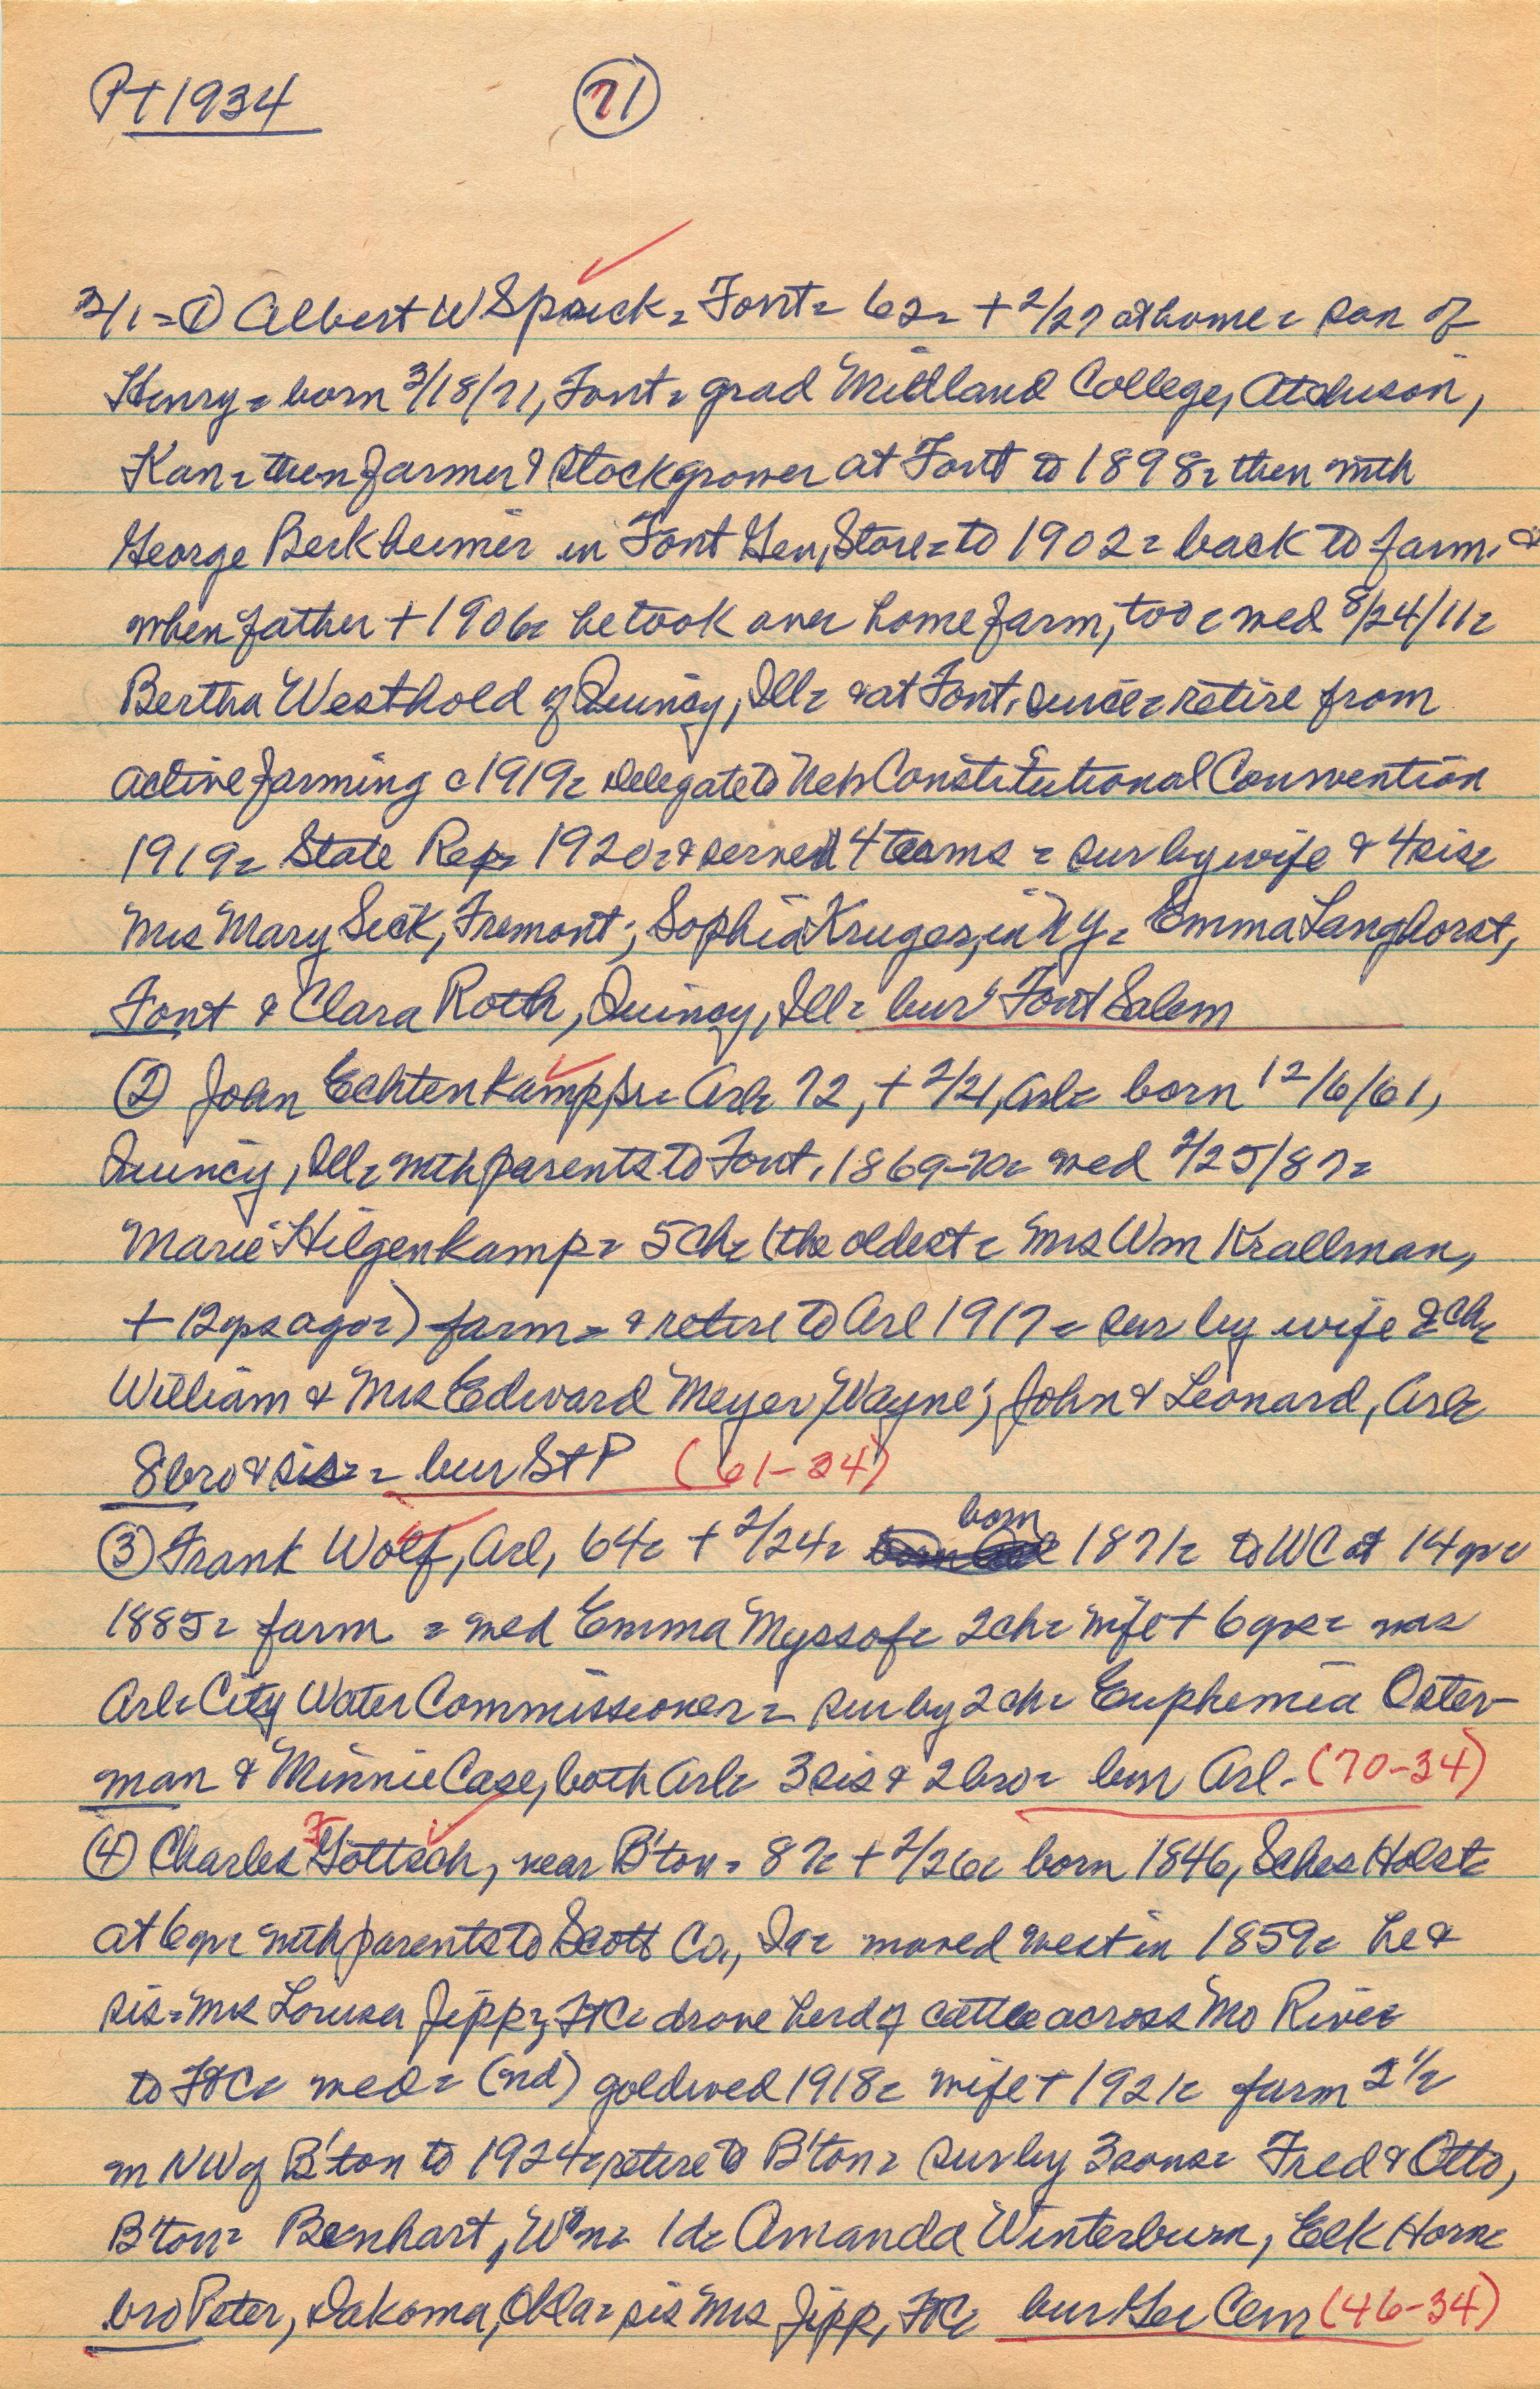 Pt 1934 (71)
3/1 = ① Albert W Spaick = Font = 62 = + 2/27 at home = son of
Henry = born 3/18/71, Font = grad Midland College, Atchison,
Kan = then farmer & stockgrower at Font to 1898 = then with
George Berkheimer in Font Gen, Store = to 1902 = back to farm &
when father + 1906 = he took over home farm, too = wed 8/24/11 =
Bertha Westhold of Quincy, Ill = & at Font, since = retire from
active farming c 1919 = delegate to Neb Constitutional Convention
1919 = State Rep = 1920 = & served 4 terms = sur by wife & 4 sis =
Mrs Mary Sick, Fremont; Sophia Kruger, in NY = Emma Langhorst,
Font & Clara Roth, Quincy, Ill = bur Font Salem
② John Echtenkamp, Sr = Arl = 72, + 2/21, Arl = born 12/6/61,
Quincy, Ill = with parents to Font, 1869-70 = wed 2/25/87 =
Marie Hilgenkamp = 5 ch = (the oldest = Mrs Wm Krallman,
+ 12 yrs ago =) farm = & retire to Arl 1917 = sur by wife & ch =
William & Mrs Edward Meyer, Wayne; John & Leonard, Arl =
8 bro & sis = = bur St P (61-34)
③ Frank Wolf, Arl, 64 = + 2/24 = born 1871 = to WC at 14 yr =
1885 = farm = wed Emma Myssof = 2 ch = wife + 6 yrs = was
Arl = City Water Commissioner = sur by 2 ch = Euphemia Oster-
man & Minnie Case, both Arl = 3 sis & 2 bro = bur Arl - (70-34)
④ Charles F Göttsch, near B'ton = 87 = + 2/26 = born 1846, Schles Holst =
at 6 yr = with parents to Scott Co, Ia = moved west in 1859 = he &
sis = Mrs Louisa Jipp, FtC = drove herd of cattle across Mo River
to FtC = wed = (nd) goldwed 1918 = wife + 1921 = farm 2 1/2
m NW of B'ton to 1924 = retire to B'ton = sur by 3 sons = Fred & Otto,
B'ton = Bernhart, W'n = 1 d = Amanda Winterburn, Elk Horn =
bro Peter, Dakoma, Okla = sis Mrs Jipp, FtC = bur Ger Cem (46-34)